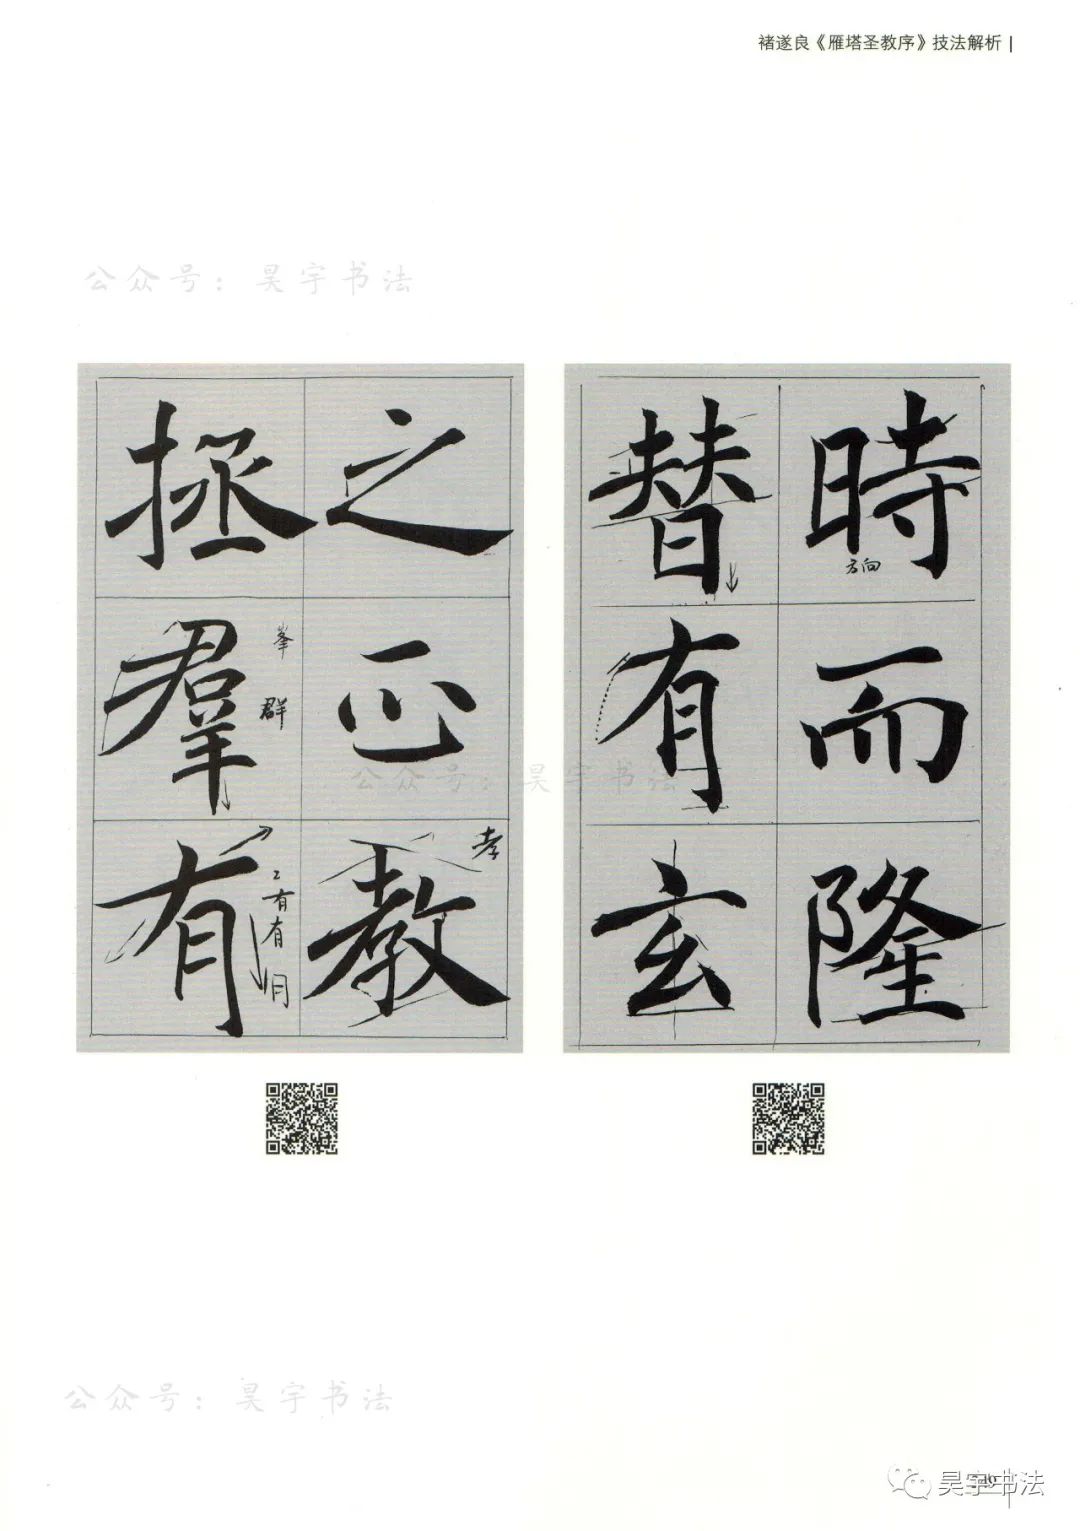 褚遂良《雁塔圣教序》技法解析
公众号：昊宇书法
時而隆
方向
替有玄
之正教
孝
拯羣有
峯
群
有
有
月
公众号：昊宇书法
公众号：昊宇书法
昊宇书法